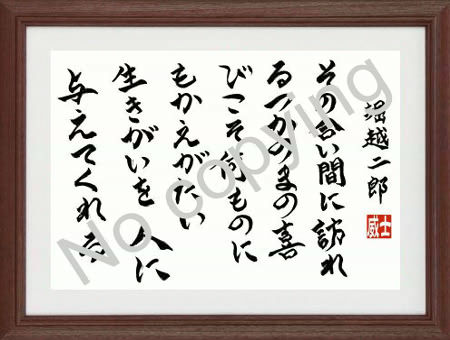 堀越二郎
威士
その合い間に訪れ
るつかのまの喜
びこそ何ものに
もかえがたい
生きがいを 人に
与えてくれる
No copying